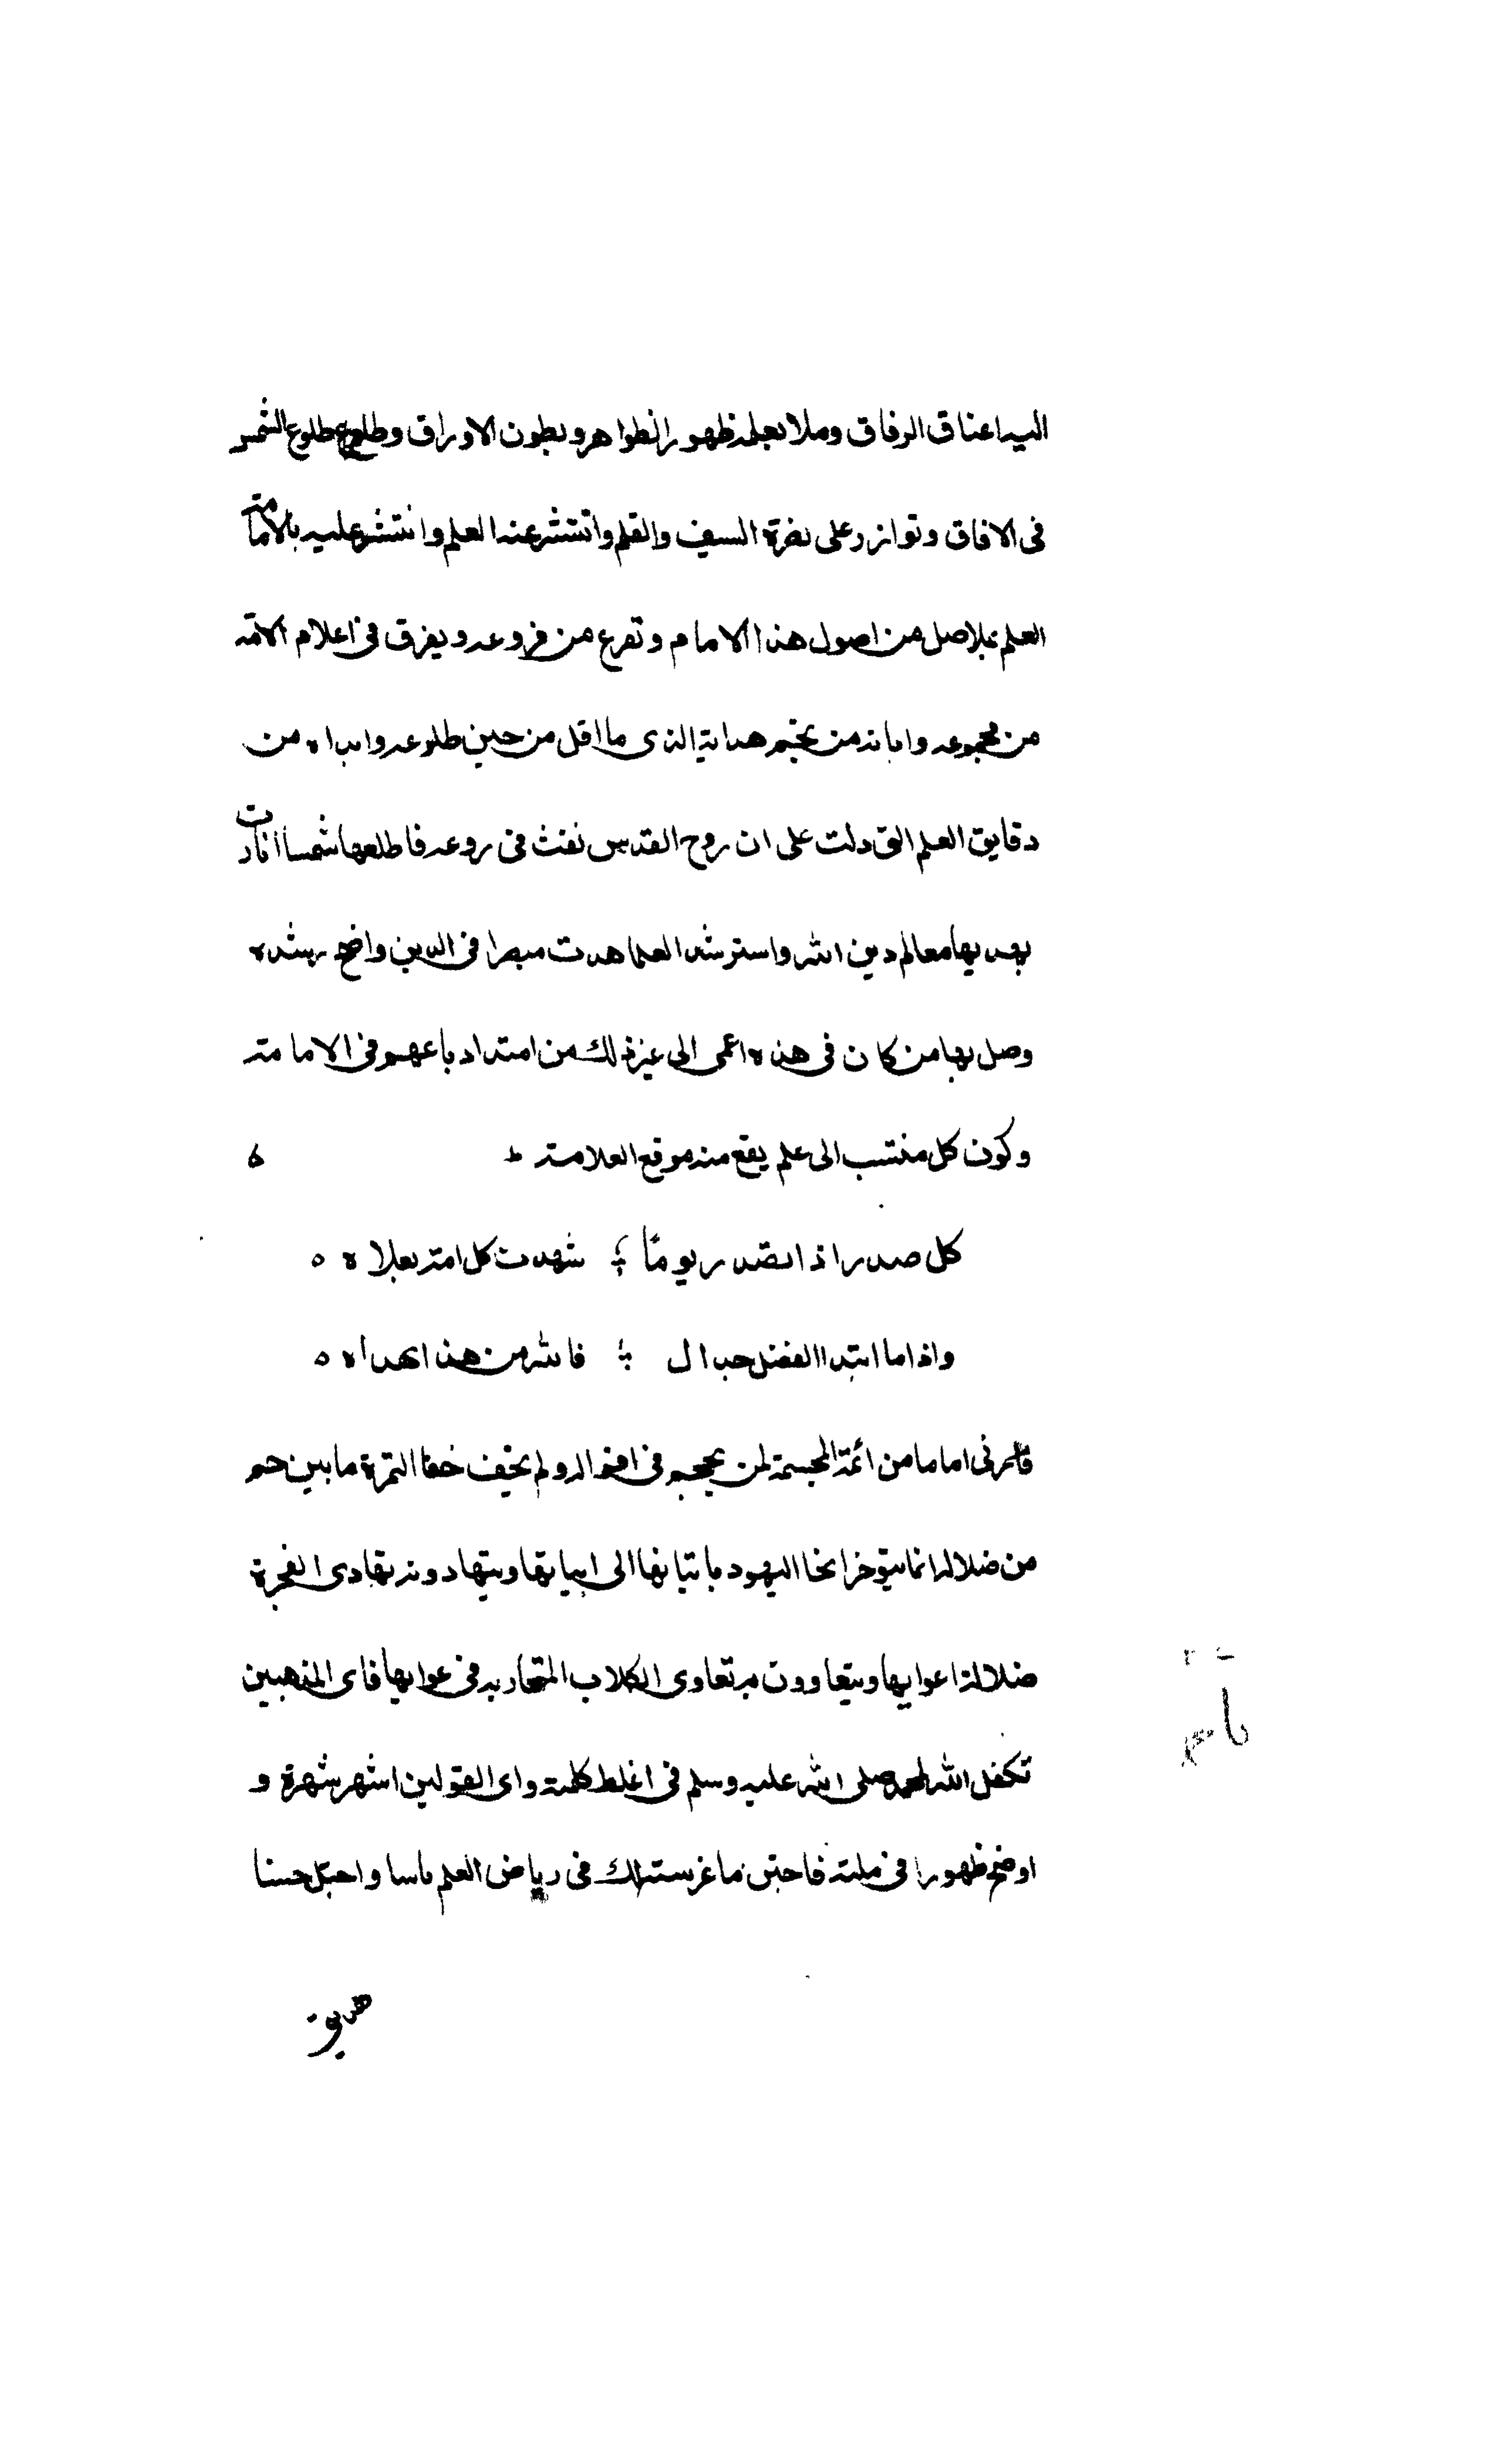 اليه اعناق الرفاق وملا بعلمه ظهور الظواهر وبطون الاوراق وطلع طلوع الشمس
فى الافاق وتوازر على نضرة السيف والقلم وانتشر عنه العلم وانتشر عليه بالامامته
العلم بلاصل من اصول هذا الامام وتفرع من فروعه ويفرق فى اعلام الامة
من مجموعه وابانه من نجم هدايته الذى ما افل من حين طلوعه وابداه من
دقايق العلم التى دلت على ان روح القدس نفث فى روعه فاطلعها شمسا انارت
بهديها معالم دين الله واسترشد العلما هدت مبصرا فى الدين واضح رشده
وصل بها من كان فى هذه اعمى الى غير ذلك من امتداد باعهم فى الامامة
وكون كل منتسب الى علم يقع منه موقع العلامة
كل صدر اذا تصدر يومًا شهدت كل امة بعلاه
واذا ما ابتدا الفضل حبدال فالله من هذا بهداه
اماما من ائمة المجسمة لمن فى اقواله ولم يخف خفا التمرة ما بين
من ضلاله انما اليهود الى ابياتها ويتهادونه تهادى الفجرة
ضلالة اعوابها ويتعاوون به تعاوى الكلاب فى عوايها فاى المذهبين
تكفل الله لمحمد صلى الله عليه وسلم فى اغلظ كلمته واى القولين اشهر شهرة و
اوضح ظهورا فى ملته فاجتن ما غرست لك فى رياض العلم واجتل حسنا